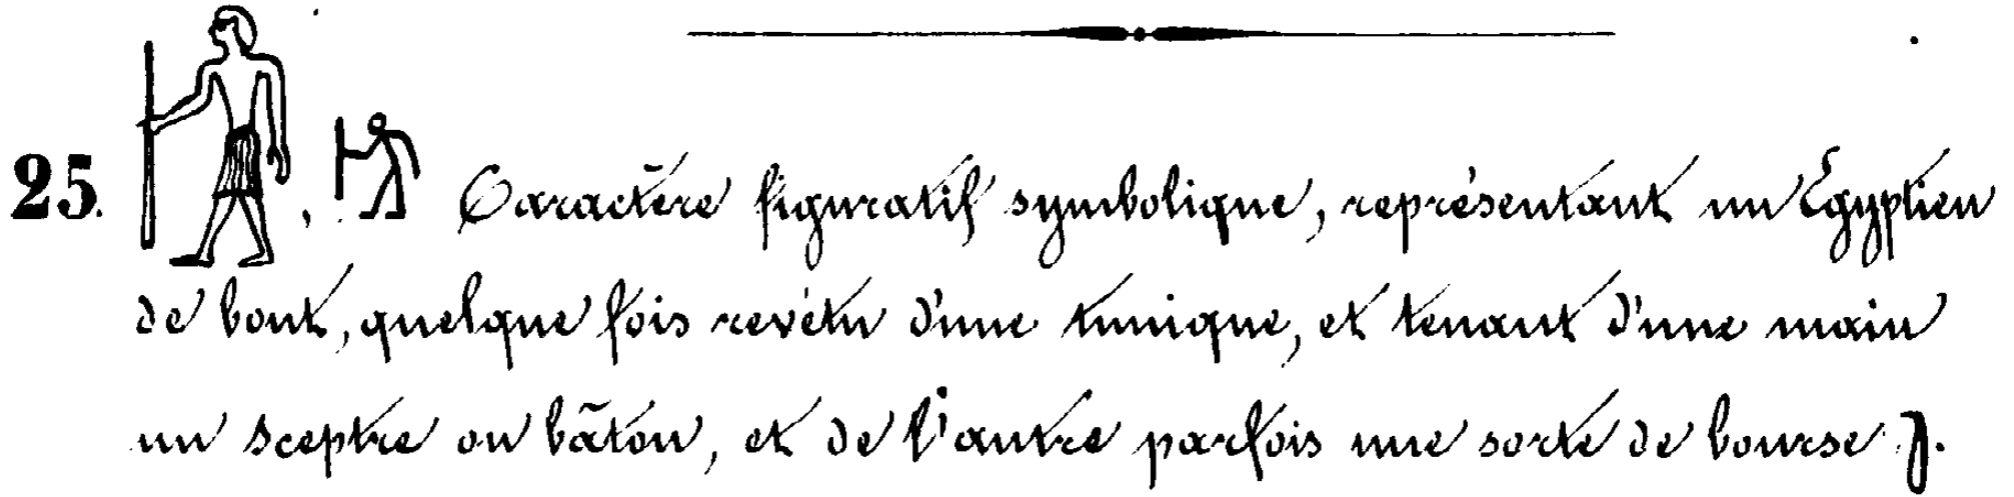 25. , Caractère figuratif symbolique, représentant un Égyptien
de bout, quelque fois revétu d'une tunique, et tenant d'une main
un sceptre ou bâton, et de l'autre parfois une sorte de bourse